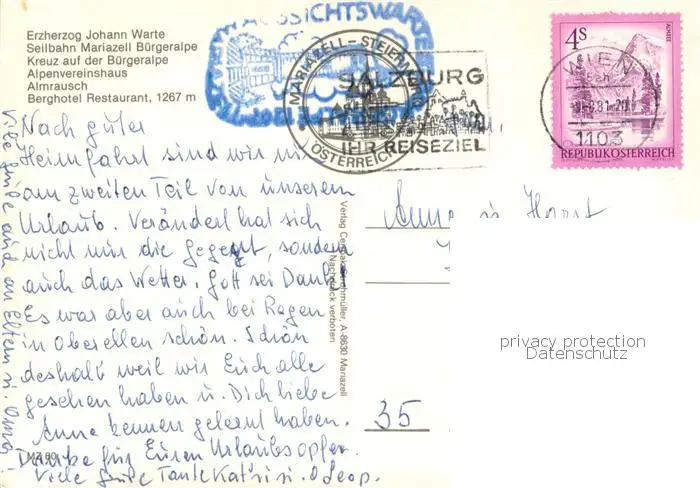 Erzherzog Johann Warte
Seilbahn Mariazell Bürgeralpe
Kreuz auf der Bürgeralpe
Alpenvereinshaus
Almrausch
Berghotel Restaurant, 1267 m
AUSSICHTSWARTE
MARIAZELL – STEIERMARK
ÖSTERREICH
SALZBURG
IHR REISEZIEL
4S
WIEN
1103
REPUBLIK ÖSTERREICH
Nach guter
Heimfahrt sind wir nun
am zweiten Teil von unserem
Urlaub. Verändert hat sich
nicht nur die Gegend, sondern
auch das Wetter. Gott sei Dank!
Es war aber auch bei Regen
in Oberellen schön. Schön
deshalb weil wir Euch alle
gesehen haben u. Dich liebe
Anne kennen gelernt haben.
Danke für Euren Urlaubsopfer.
Viele Grüße Tante Kathi u. O Leop.
Viele Grüße auch an Eltern u. Oma!
Anne u. Horst
35
Nachdruck verboten
A-8630 Mariazell
privacy protection
Datenschutz